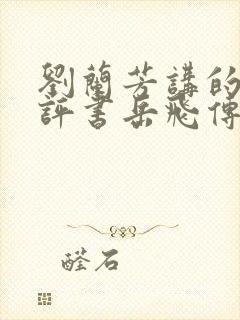 劉蘭芳講的
評書岳飛傳
醛石